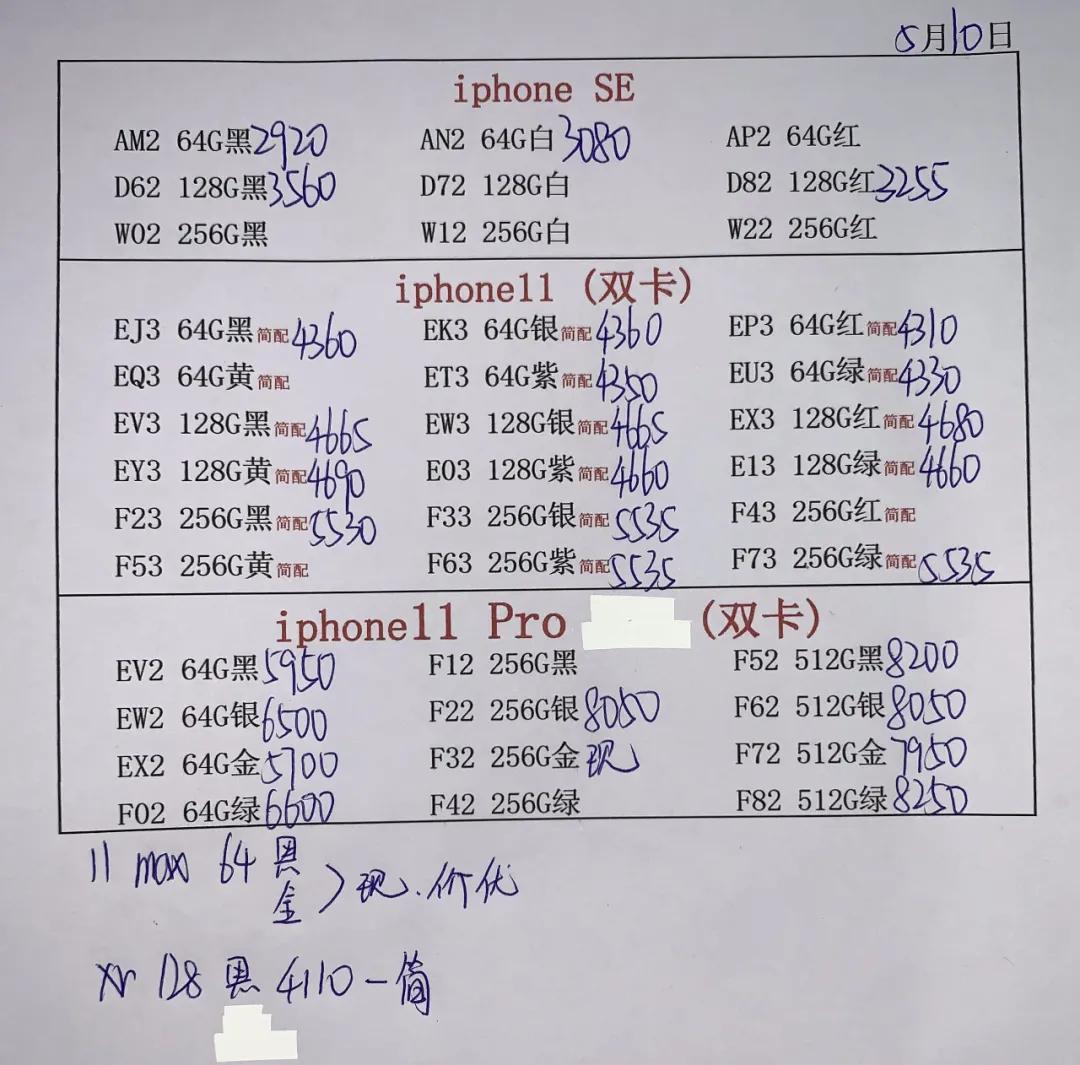 5月10日
iphone SE
AM2 64G黑2920 AN2 64G白3080 AP2 64G红
D62 128G黑3560 D72 128G白 D82 128G红3255
W02 256G黑 W12 256G白 W22 256G红
iphone11 (双卡)
EJ3 64G黑简配4360 EK3 64G银简配4360 EP3 64G红简配4310
EQ3 64G黄简配 ET3 64G紫简配4350 EU3 64G绿简配4330
EV3 128G黑简配4665 EW3 128G银简配4665 EX3 128G红简配4680
EY3 128G黄简配4690 E03 128G紫简配4660 E13 128G绿简配4660
F23 256G黑简配5530 F33 256G银简配5535 F43 256G红简配
F53 256G黄简配 F63 256G紫简配5535 F73 256G绿简配5535
iphone11 Pro (双卡)
EV2 64G黑5950 F12 256G黑 F52 512G黑8200
EW2 64G银6500 F22 256G银8050 F62 512G银8050
EX2 64G金5700 F32 256G金现 F72 512G金7950
F02 64G绿6600 F42 256G绿 F82 512G绿8250
11 max 64 黑
金 > 现.价优
xr 128 黑 4110-简